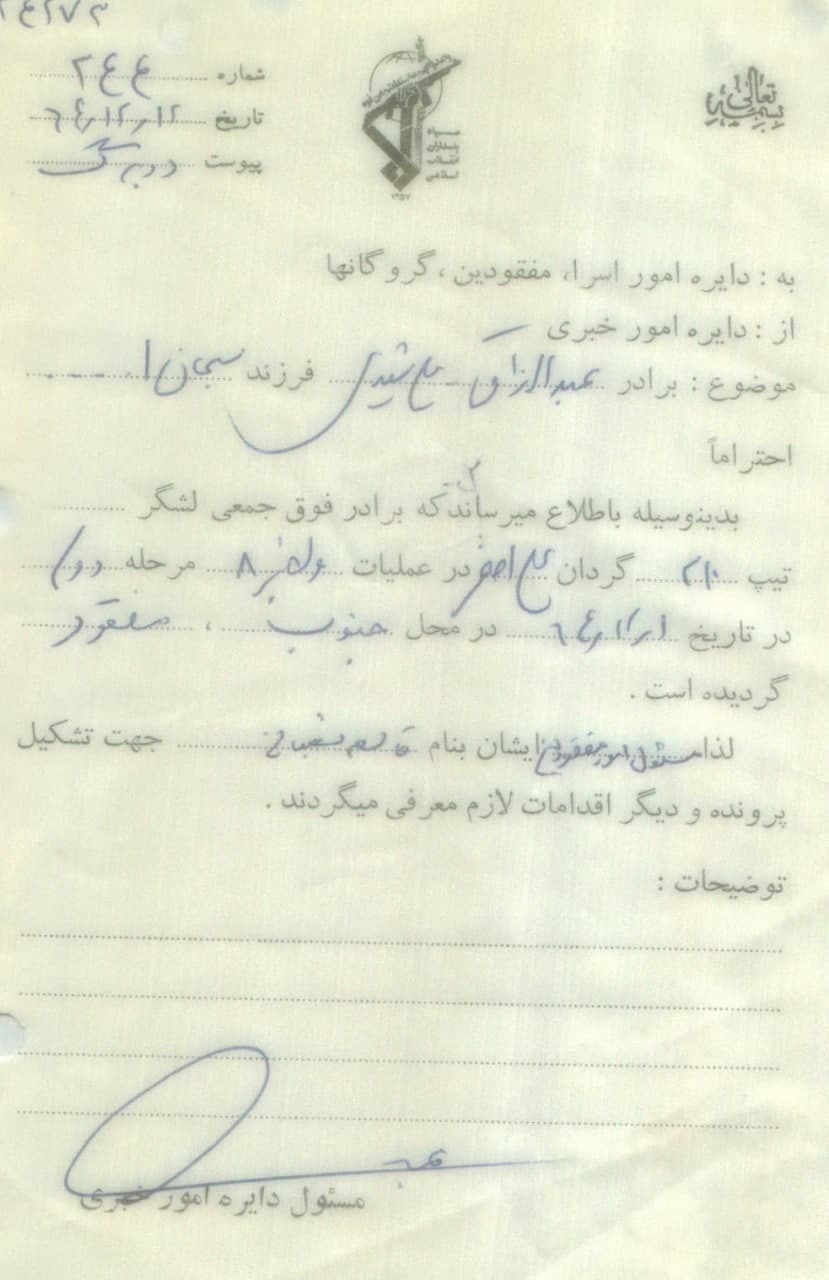 بسمه تعالی
شماره ۲۴۴
تاریخ ۶۴٫۱۲٫۱۲
پیوست دو برگ
۱۳۵۷
به : دایره امور اسرا، مفقودین ، گروگانها
از : دایره امور خبری
موضوع : برادر عبدالرزاق فرزند
احتراماً
بدینوسیله باطلاع میرساند که برادر فوق جمعی لشگر
تیپ ۲۱ گردان علی اصغر در عملیات والفجر ۸ مرحله دوم
در تاریخ ۶۴٫۱۲٫۱ در محل جنوب ، مفقود
گردیده است .
لذا مسئول امور مفقودین ایشان بنام جهت تشکیل
پرونده و دیگر اقدامات لازم معرفی میگردند .
توضیحات :
مسئول دایره امور خبری